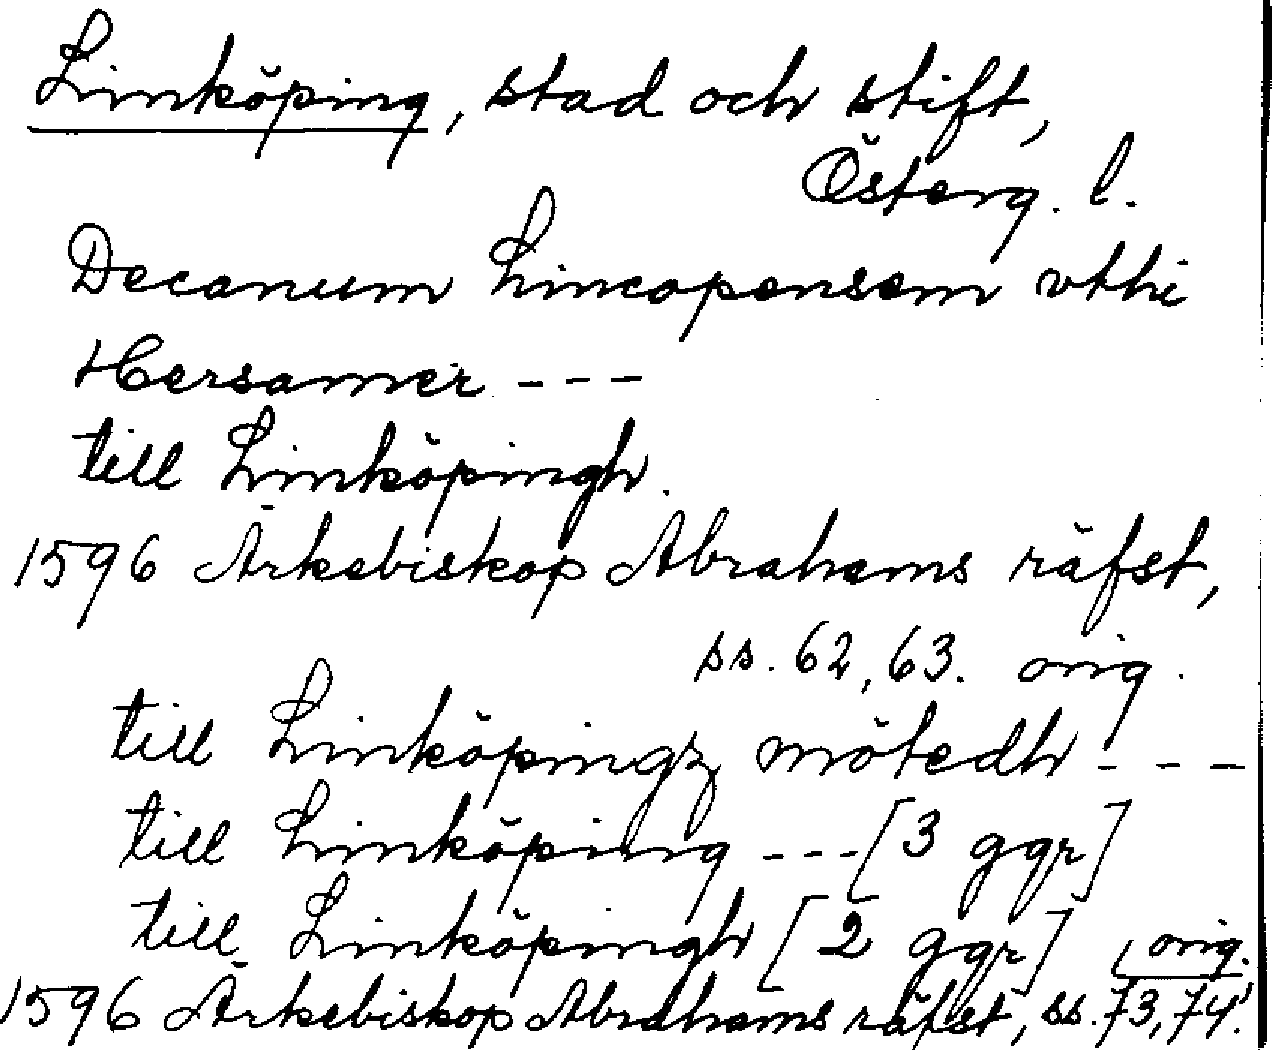 Linköping, stad och stift,
Österg. l.
Decanum Lincopensem vthi
Hersamer ---
till Linköpingh.
1596 Ärkebiskop Abrahams räfst,
ss. 62, 63. orig.
till Linköpingz mötedh ---
till Linköping --- [3 ggr]
till Linköpingh [2 ggr] , orig.
1596 Ärkebiskop Abrahams räfst, ss. 73, 74.